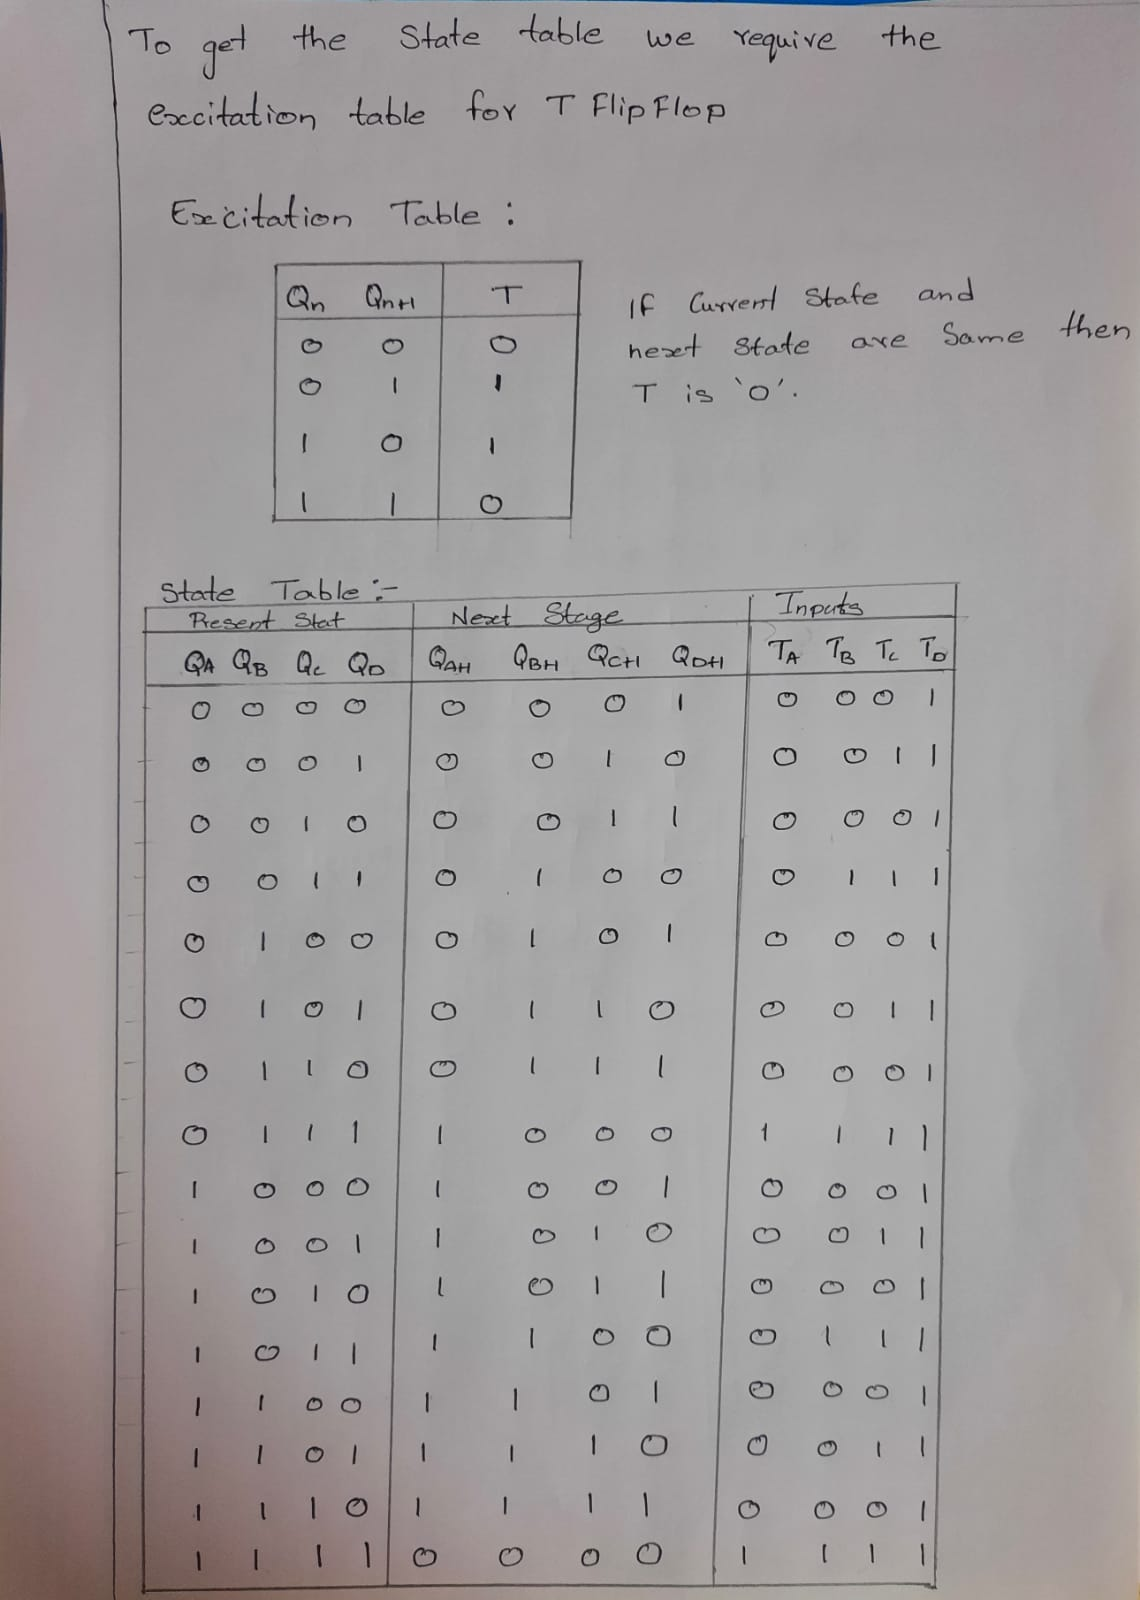 To get the State table we require the
excitation table for T Flip Flop
Excitation Table :
Qn Qn+1 T
0 0 0
0 1 1
1 0 1
1 1 0
If Current State and
next state are Same then
T is '0'.
State Table :-
Present Stat Next Stage Inputs
QA QB QC QD QA+1 QB+1 QC+1 QD+1 TA TB TC TD
0 0 0 0 0 0 0 1 0 0 0 1
0 0 0 1 0 0 1 0 0 0 1 1
0 0 1 0 0 0 1 1 0 0 0 1
0 0 1 1 0 1 0 0 0 1 1 1
0 1 0 0 0 1 0 1 0 0 0 1
0 1 0 1 0 1 1 0 0 0 1 1
0 1 1 0 0 1 1 1 0 0 0 1
0 1 1 1 1 0 0 0 1 1 1 1
1 0 0 0 1 0 0 1 0 0 0 1
1 0 0 1 1 0 1 0 0 0 1 1
1 0 1 0 1 0 1 1 0 0 0 1
1 0 1 1 1 1 0 0 0 1 1 1
1 1 0 0 1 1 0 1 0 0 0 1
1 1 0 1 1 1 1 0 0 0 1 1
1 1 1 0 1 1 1 1 0 0 0 1
1 1 1 1 0 0 0 0 1 1 1 1